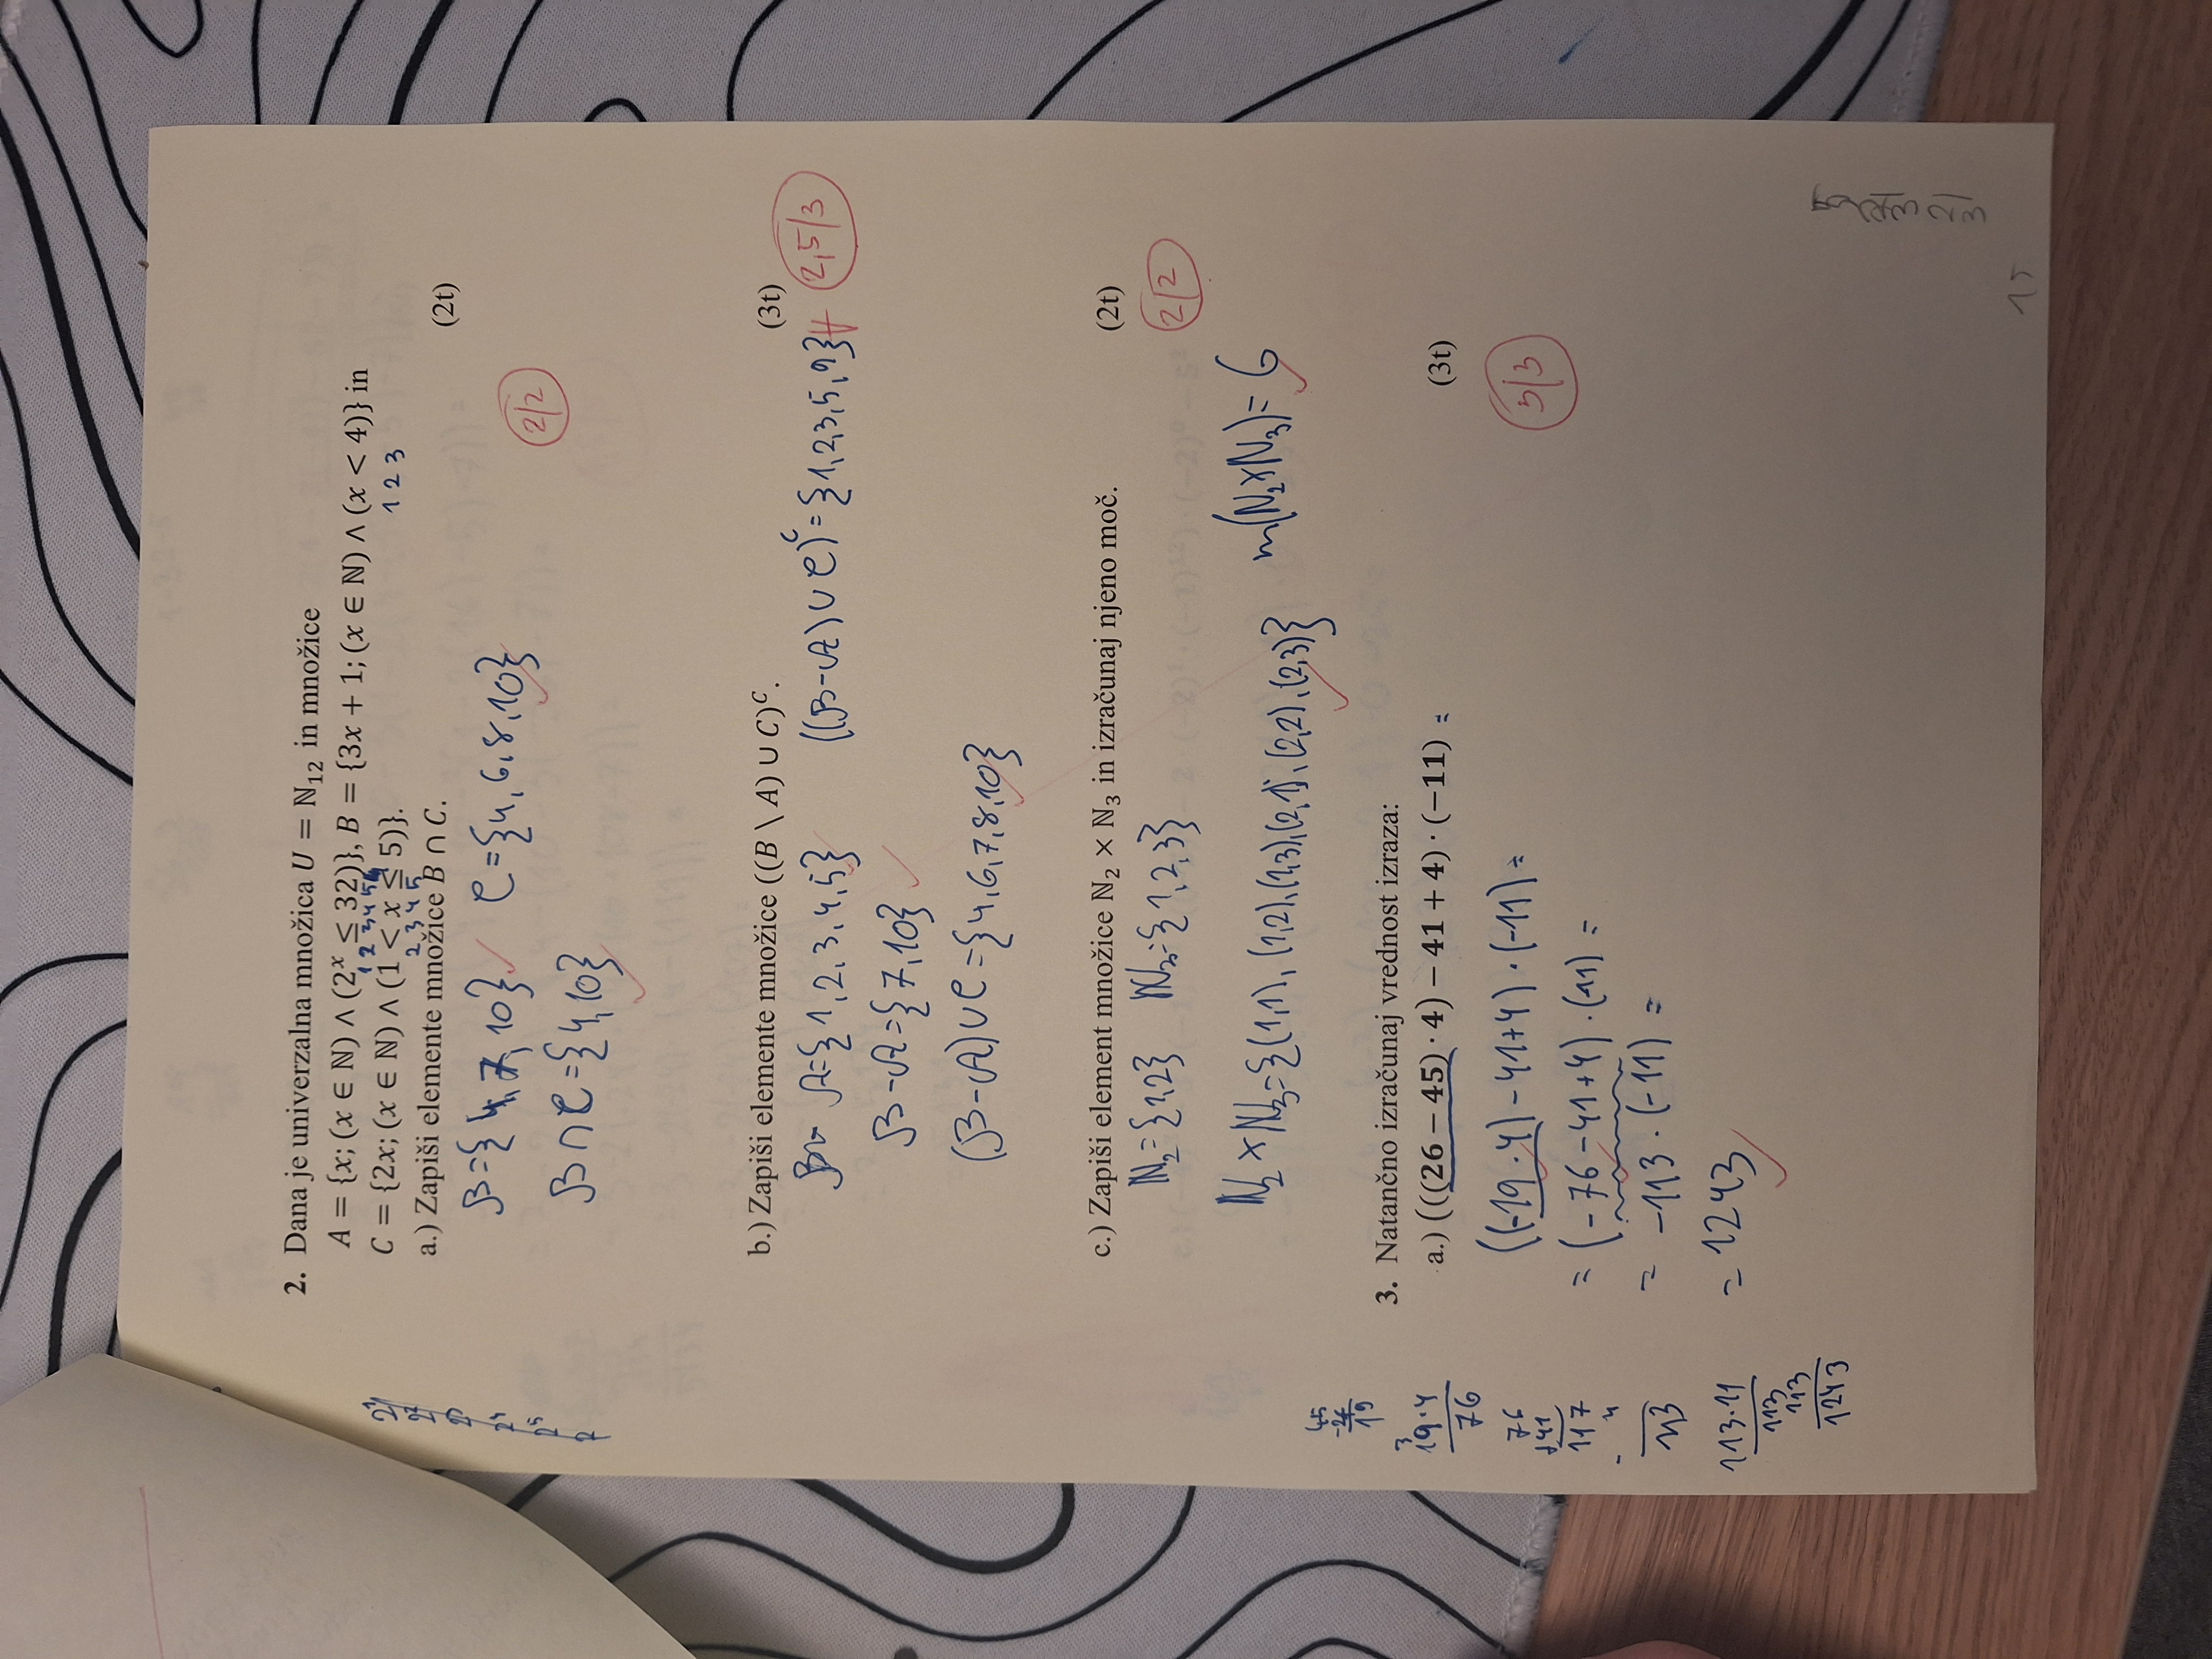 2. Dana je univerzalna množica U = ℕ₁₂ in množice
A = {x; (x ∈ ℕ) ∧ (2ˣ ≤ 32)}, B = {3x + 1; (x ∈ ℕ) ∧ (x < 4)} in
1 2 3 4 5
C = {2x; (x ∈ ℕ) ∧ (1 < x ≤ 5)}.
1 2 3
2 3 4 5
a.) Zapiši elemente množice B ∩ C.
(2t)
B={4, 7, 10} C={4, 6, 8, 10}
2/2
B∩C={4, 10}
2¹
2²
2³
2⁴
2⁵
2
b.) Zapiši elemente množice ((B \ A) ∪ C)ᶜ.
(3t)
A={1, 2, 3, 4, 5} ((B-A)∪C)ᶜ={1,2,3,5,9}
2,5/3
B-A={7, 10}
(B-A)∪C={4,6,7,8,10}
c.) Zapiši element množice ℕ₂ × ℕ₃ in izračunaj njeno moč.
(2t)
ℕ₂={1,2} ℕ₃={1,2,3}
2/2
ℕ₂×ℕ₃={(1,1), (1,2), (1,3), (2,1), (2,2), (2,3)} m(ℕ₂×ℕ₃)= 6
3. Natančno izračunaj vrednost izraza:
a.) (((26 − 45) · 4) − 41 + 4) · (−11) =
(3t)
((-19 · 4) - 41+4) · (-11) =
3/3
= (-76-41+4) · (11) =
= -113 · (-11) =
= 1243
45
-26
19
3
19·4
76
76
+41
117
- 4
113
113·11
113
113
1243
15